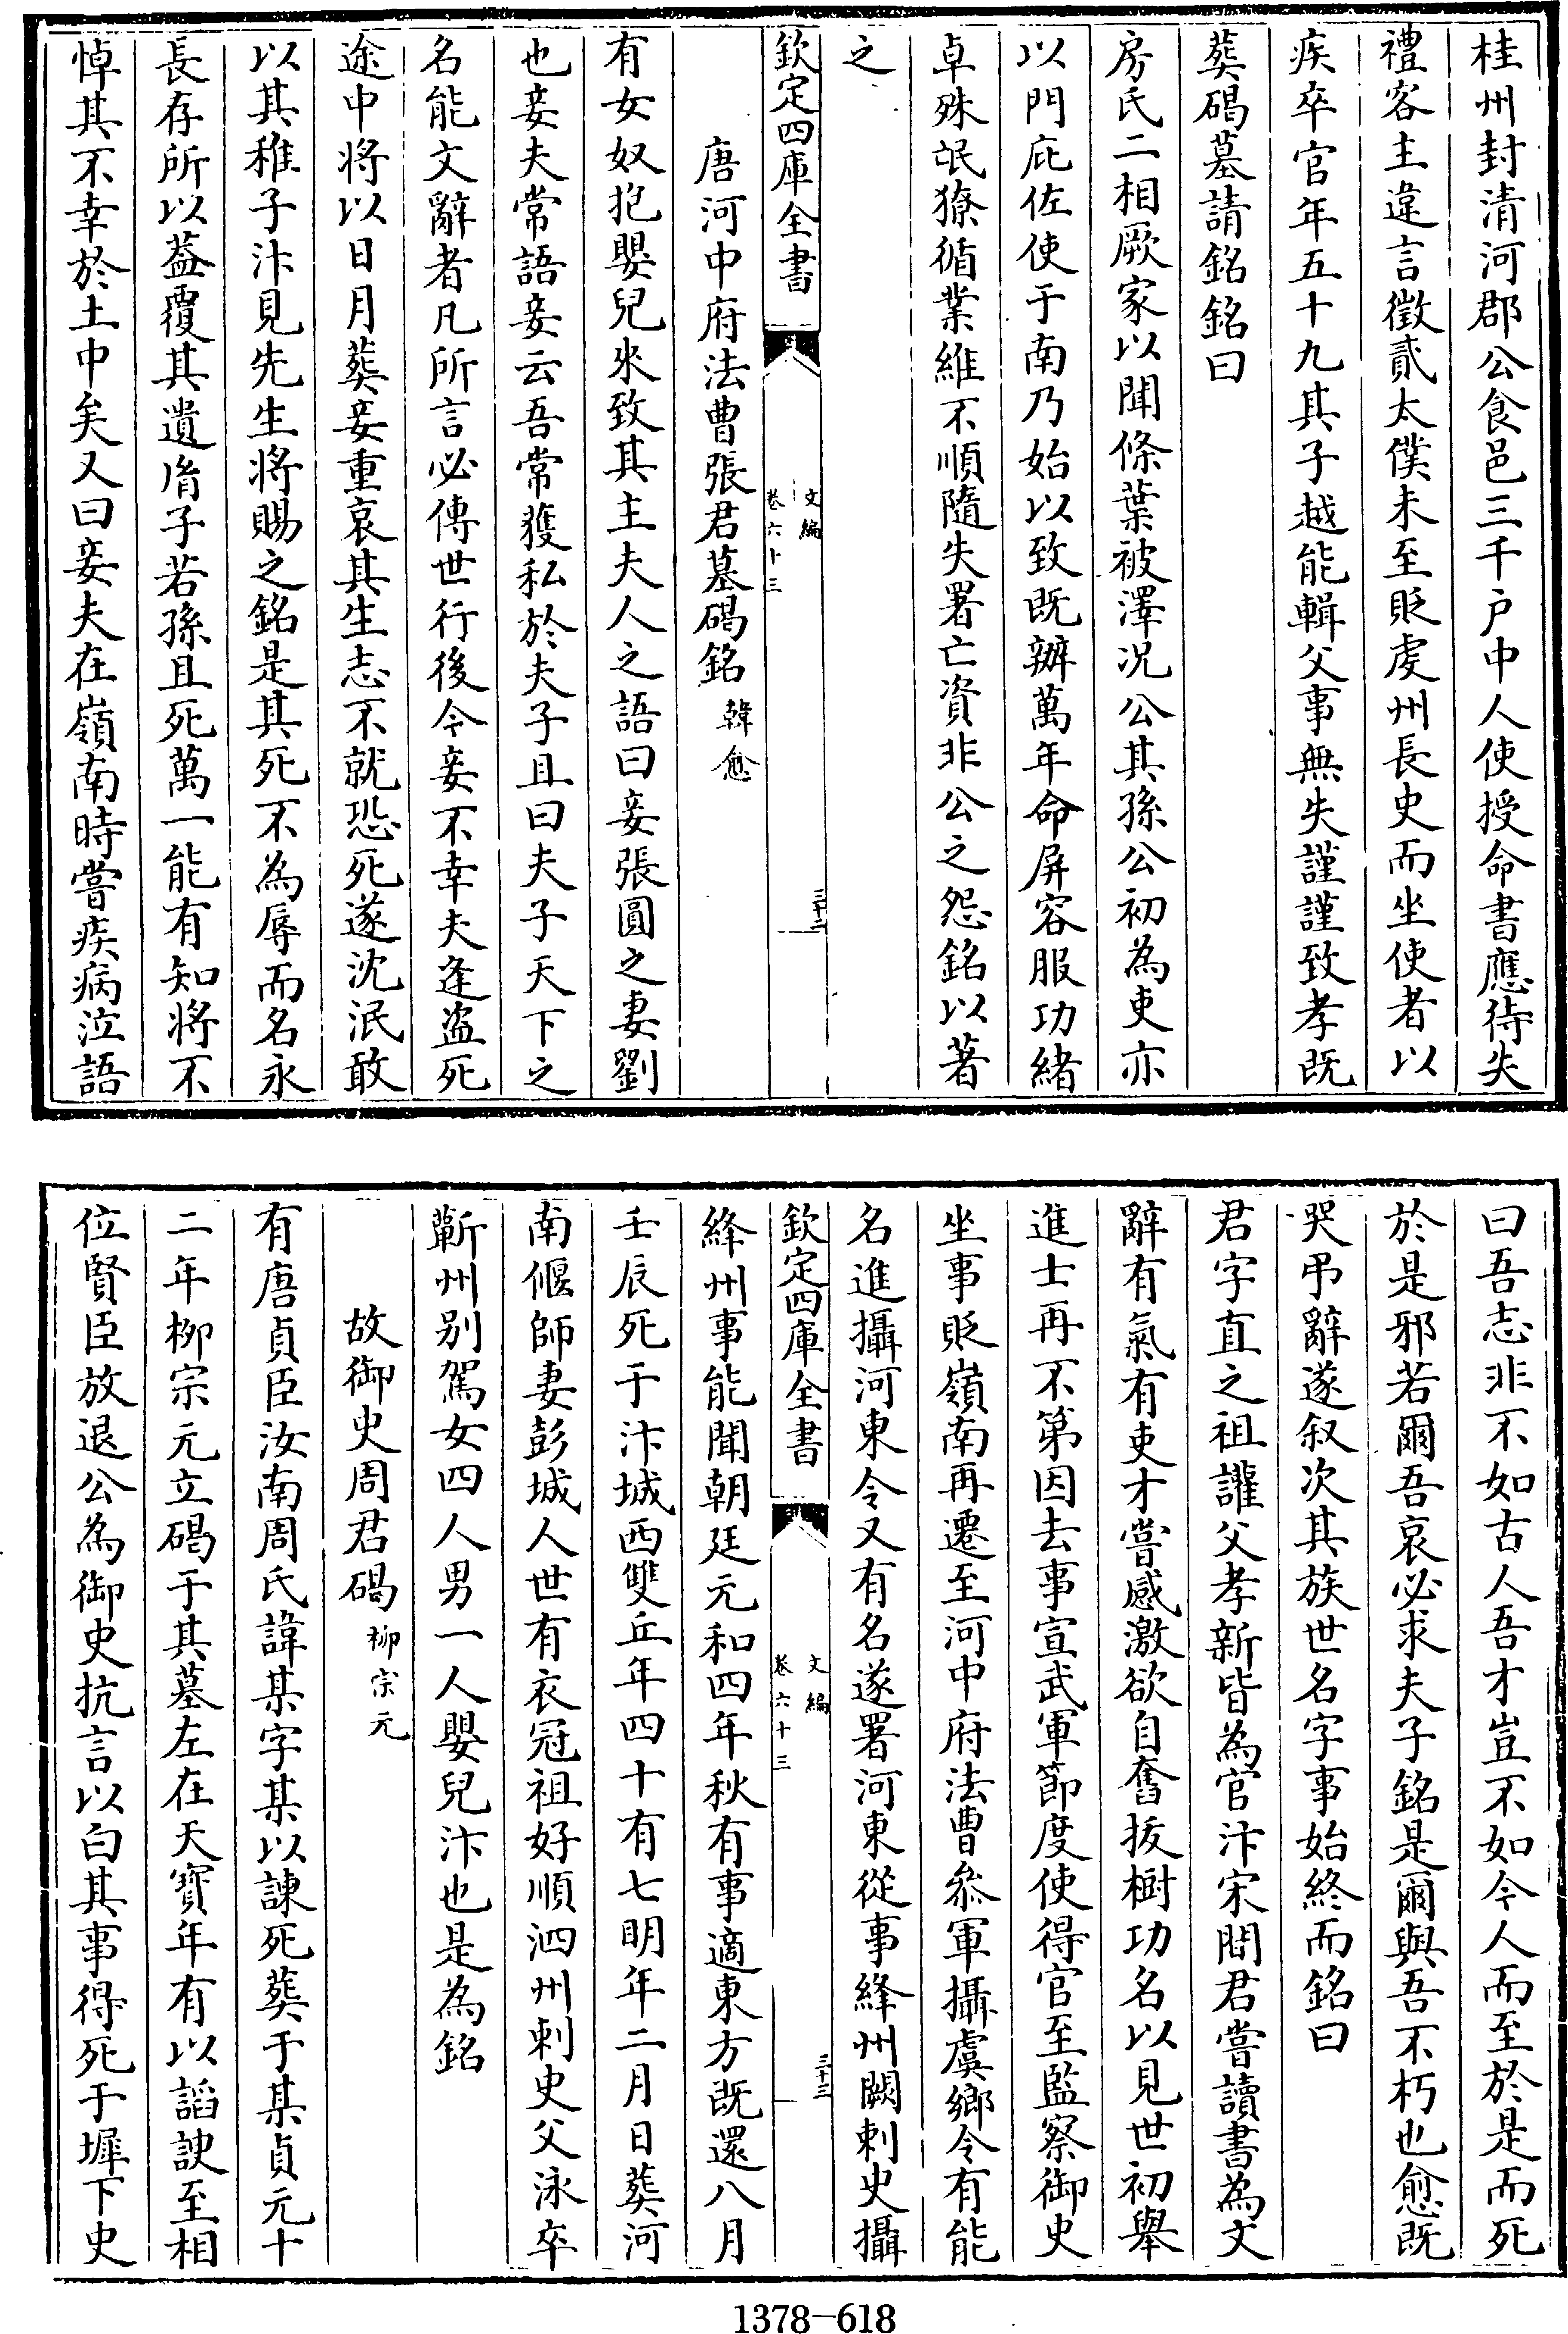 桂州封清河郡公食邑三千户中人使授命書應待失
禮客主違言徵貳太僕未至貶虔州長史而坐使者以
疾卒官年五十九其子越能輯父事無失謹謹致孝既
葬碣墓請銘銘曰
房氏二相厥家以聞條葉被澤况公其孫公初為吏亦
以門庇佐使于南乃始以致既辦萬年命屏容服功緒
卓殊氓獠循業維不順隨失署亡資非公之怨銘以著
之
欽定四庫全書
文編
卷六十三
三十二
唐河中府法曹張君墓碣銘 韓愈
有女奴抱嬰兒來致其主夫人之語曰妾張圓之妻劉
也妾夫常語妾云吾常獲私於夫子且曰夫子天下之
名能文辭者凡所言必傳世行後今妾不幸夫逢盜死
途中將以日月葬妾重哀其生志不就恐死遂沈泯敢
以其稚子汴見先生將賜之銘是其死不為辱而名永
長存所以葢覆其遺胤子若孫且死萬一能有知將不
悼其不幸於土中矣又曰妾夫在嶺南時嘗疾病泣語
曰吾志非不如古人吾才豈不如今人而至於是而死
於是邪若爾吾哀必求夫子銘是爾與吾不朽也愈既
哭弔辭遂叙次其族世名字事始終而銘曰
君字直之祖讙父孝新皆為官汴宋間君嘗讀書為文
辭有氣有吏才嘗感激欲自奮拔樹功名以見世初舉
進士再不第因去事宣武軍節度使得官至監察御史
坐事貶嶺南再遷至河中府法曹叅軍攝虞鄉令有能
名進攝河東令又有名遂署河東從事絳州闕刺史攝
欽定四庫全書
文編
卷六十三
三十三
絳州事能聞朝廷元和四年秋有事適東方既還八月
壬辰死于汴城西雙丘年四十有七明年二月日葬河
南偃師妻彭城人世有衣冠祖好順泗州刺史父泳卒
蘄州别駕女四人男一人嬰兒汴也是為銘
故御史周君碣 柳宗元
有唐貞臣汝南周氏諱某字某以諫死葬于某貞元十
二年柳宗元立碣于其墓左在天寶年有以諂諛至相
位賢臣放退公為御史抗言以白其事得死于墀下史
1378-618